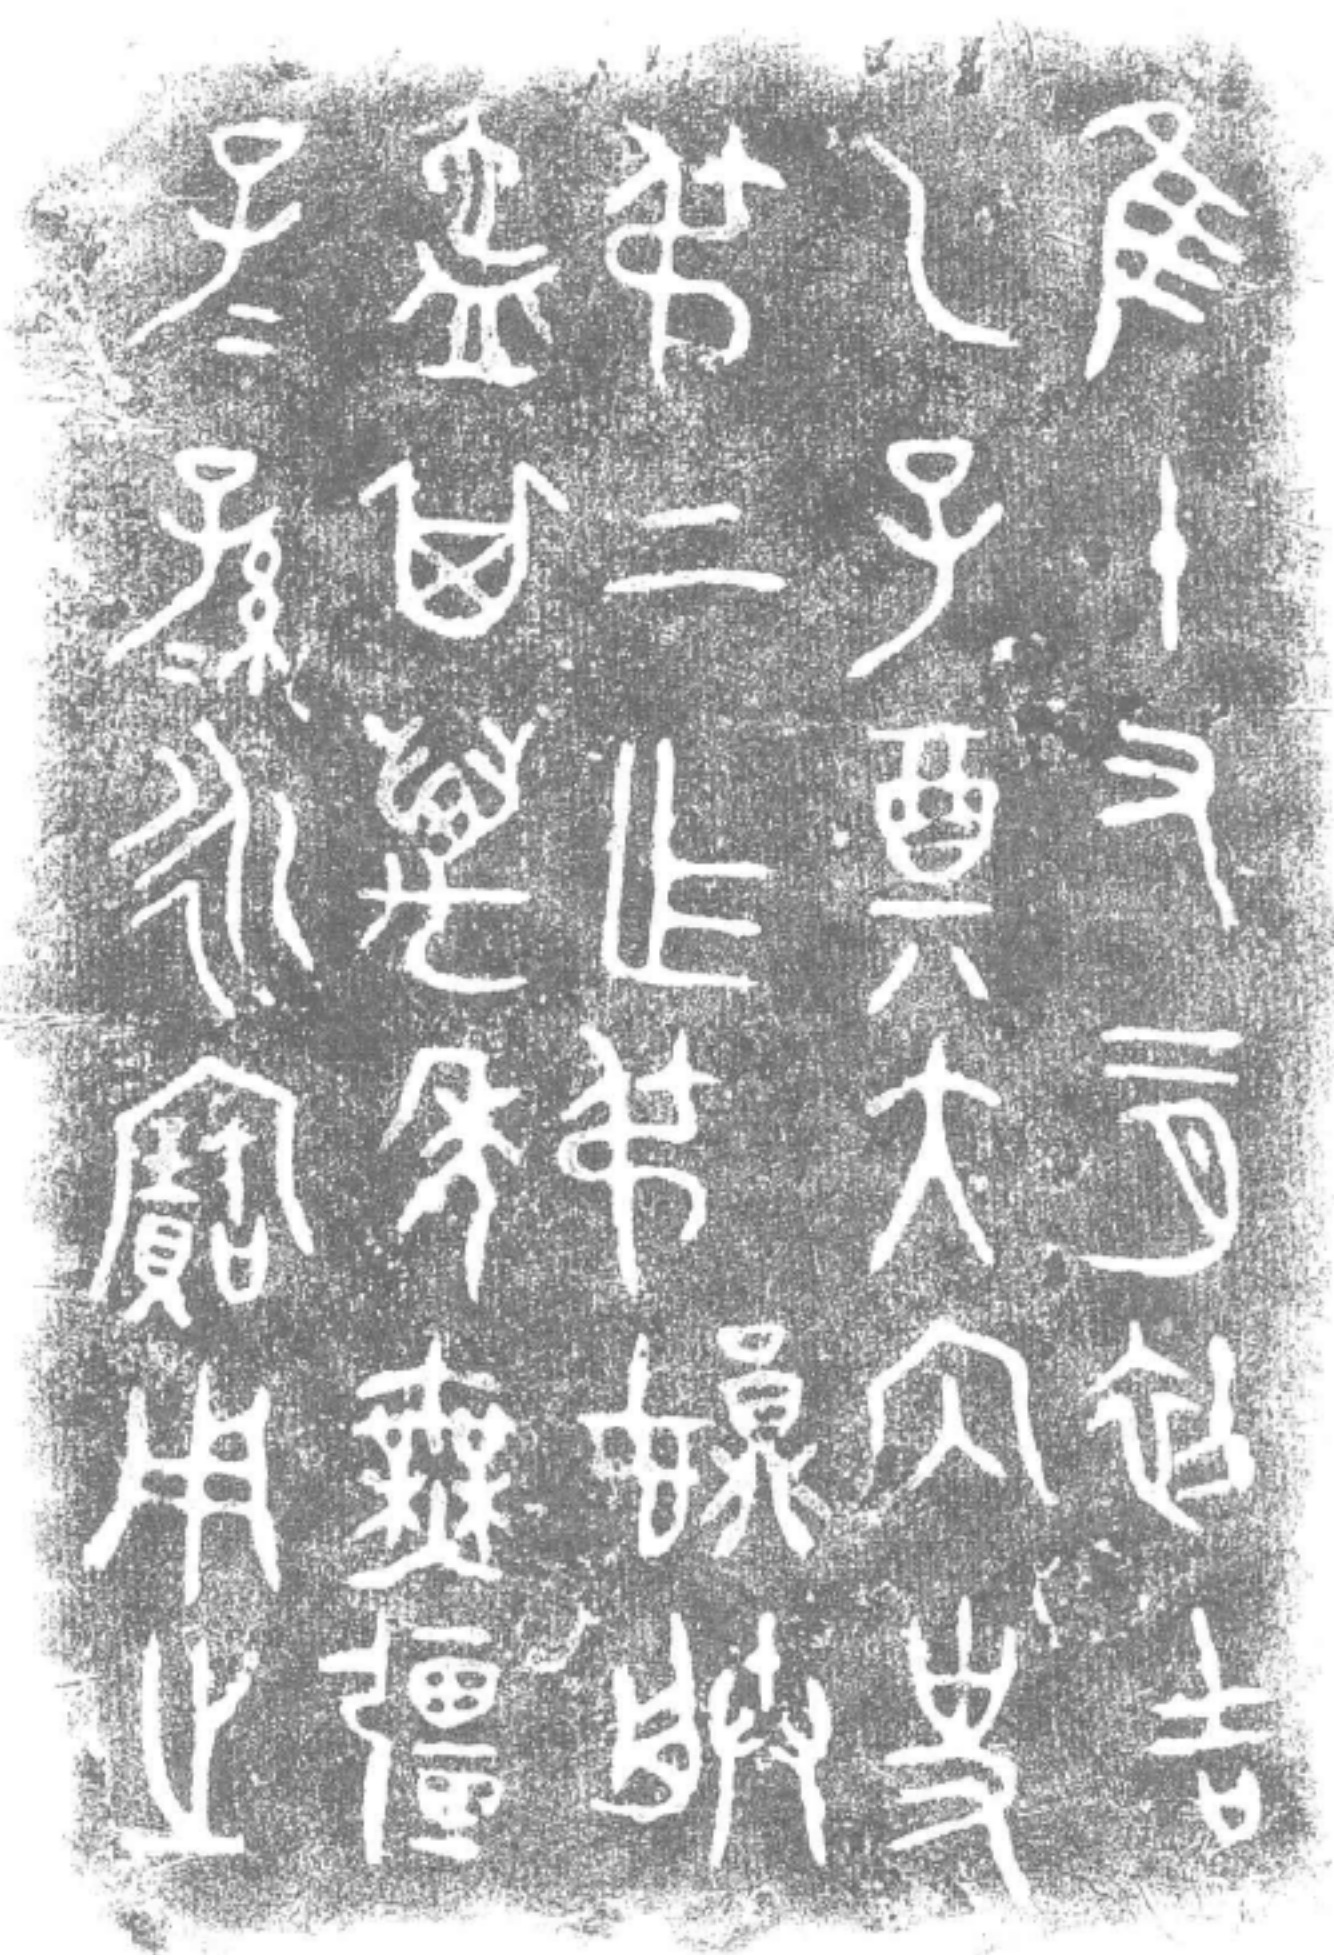 隹十又二月初吉
乙子奠大内史
弔上乍弔娟媵
𥁓其萬年無疆
子=孫=永寶用之